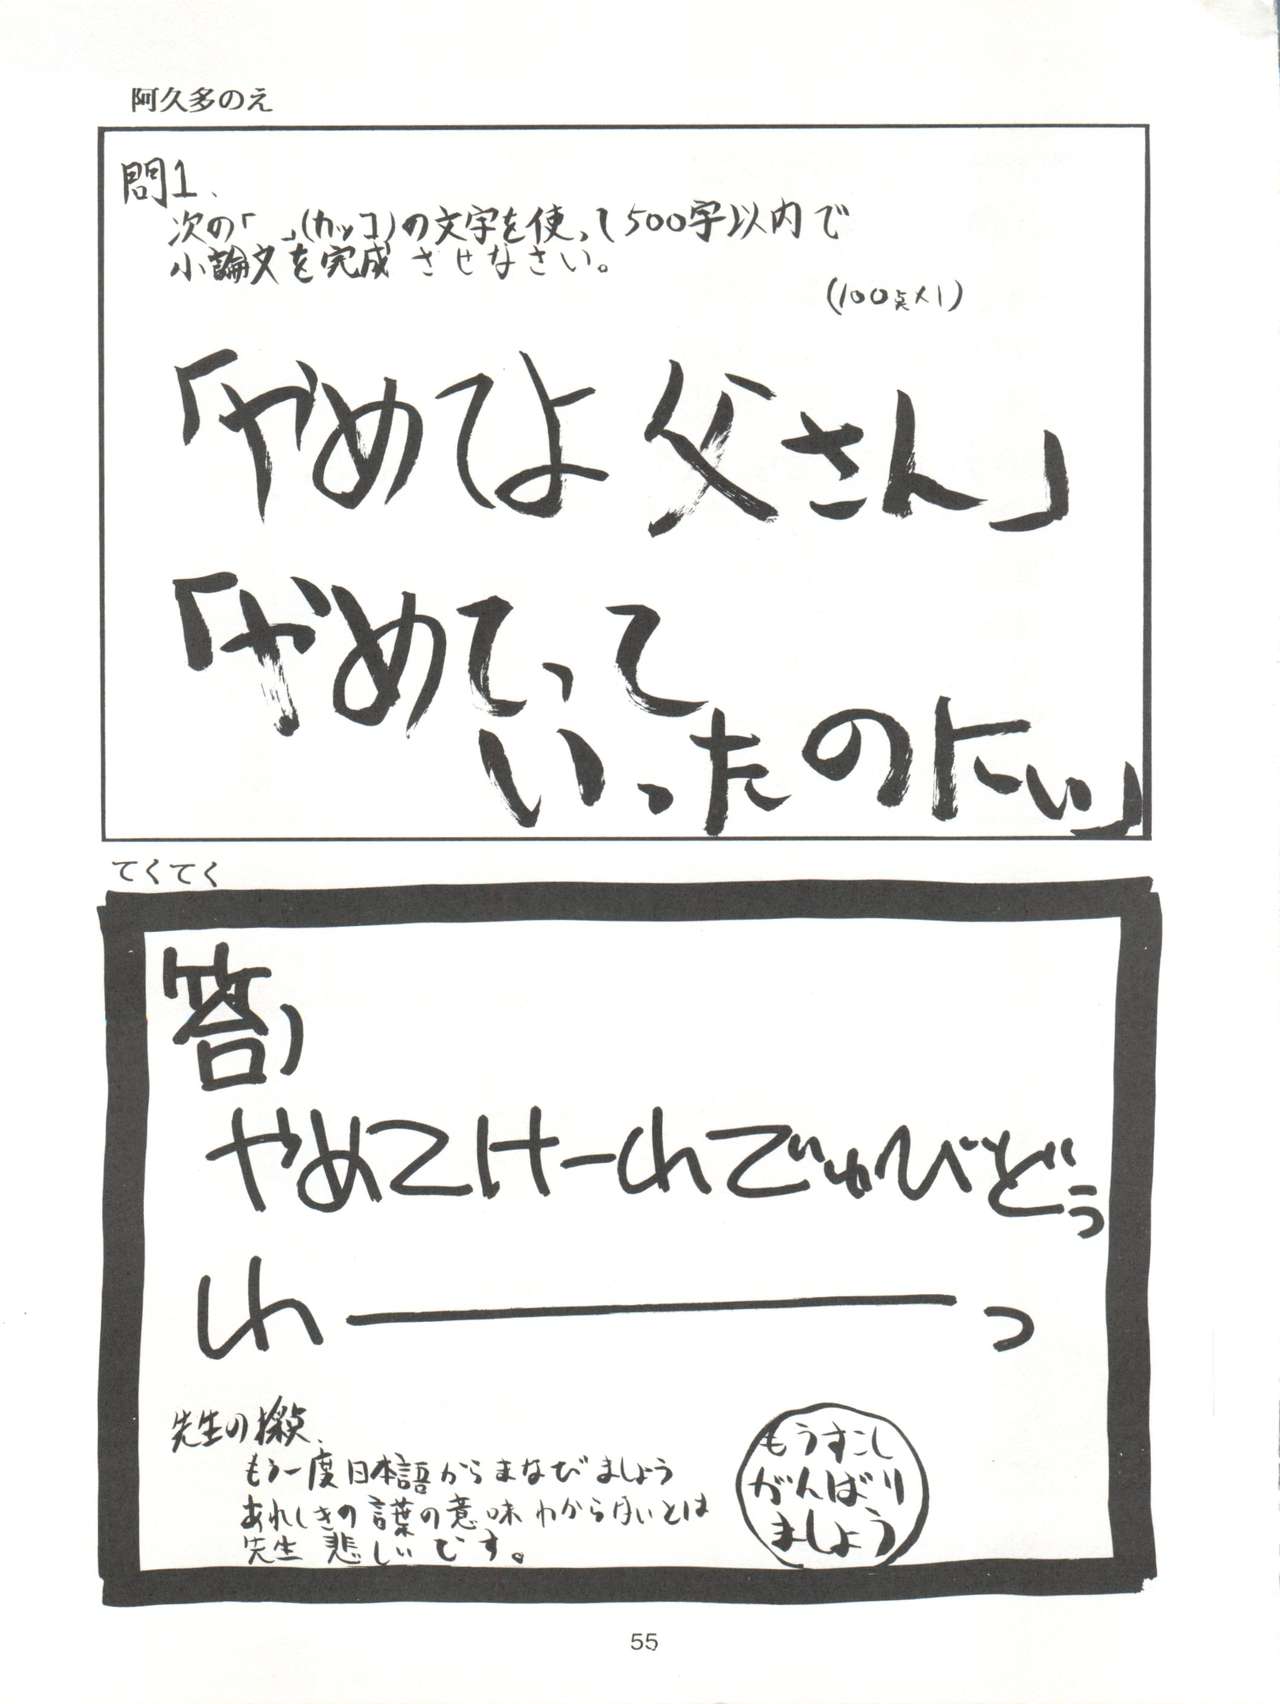 阿久多のえ
問1、
次の「　」(カッコ)の文字を使って500字以内で
小論文を完成させなさい。
(100点×1)
「やめてよ 父さん」
「やめてって
いったのにぃ」
てくてく
答)
やめてけーれでぃゅびどぅ
わ――――っ
先生の採点.
もう一度日本語からまなびましょう
あれしきの言葉の意味わからないとは
先生 悲しいです。
もうすこし
がんばり
ましょう
55